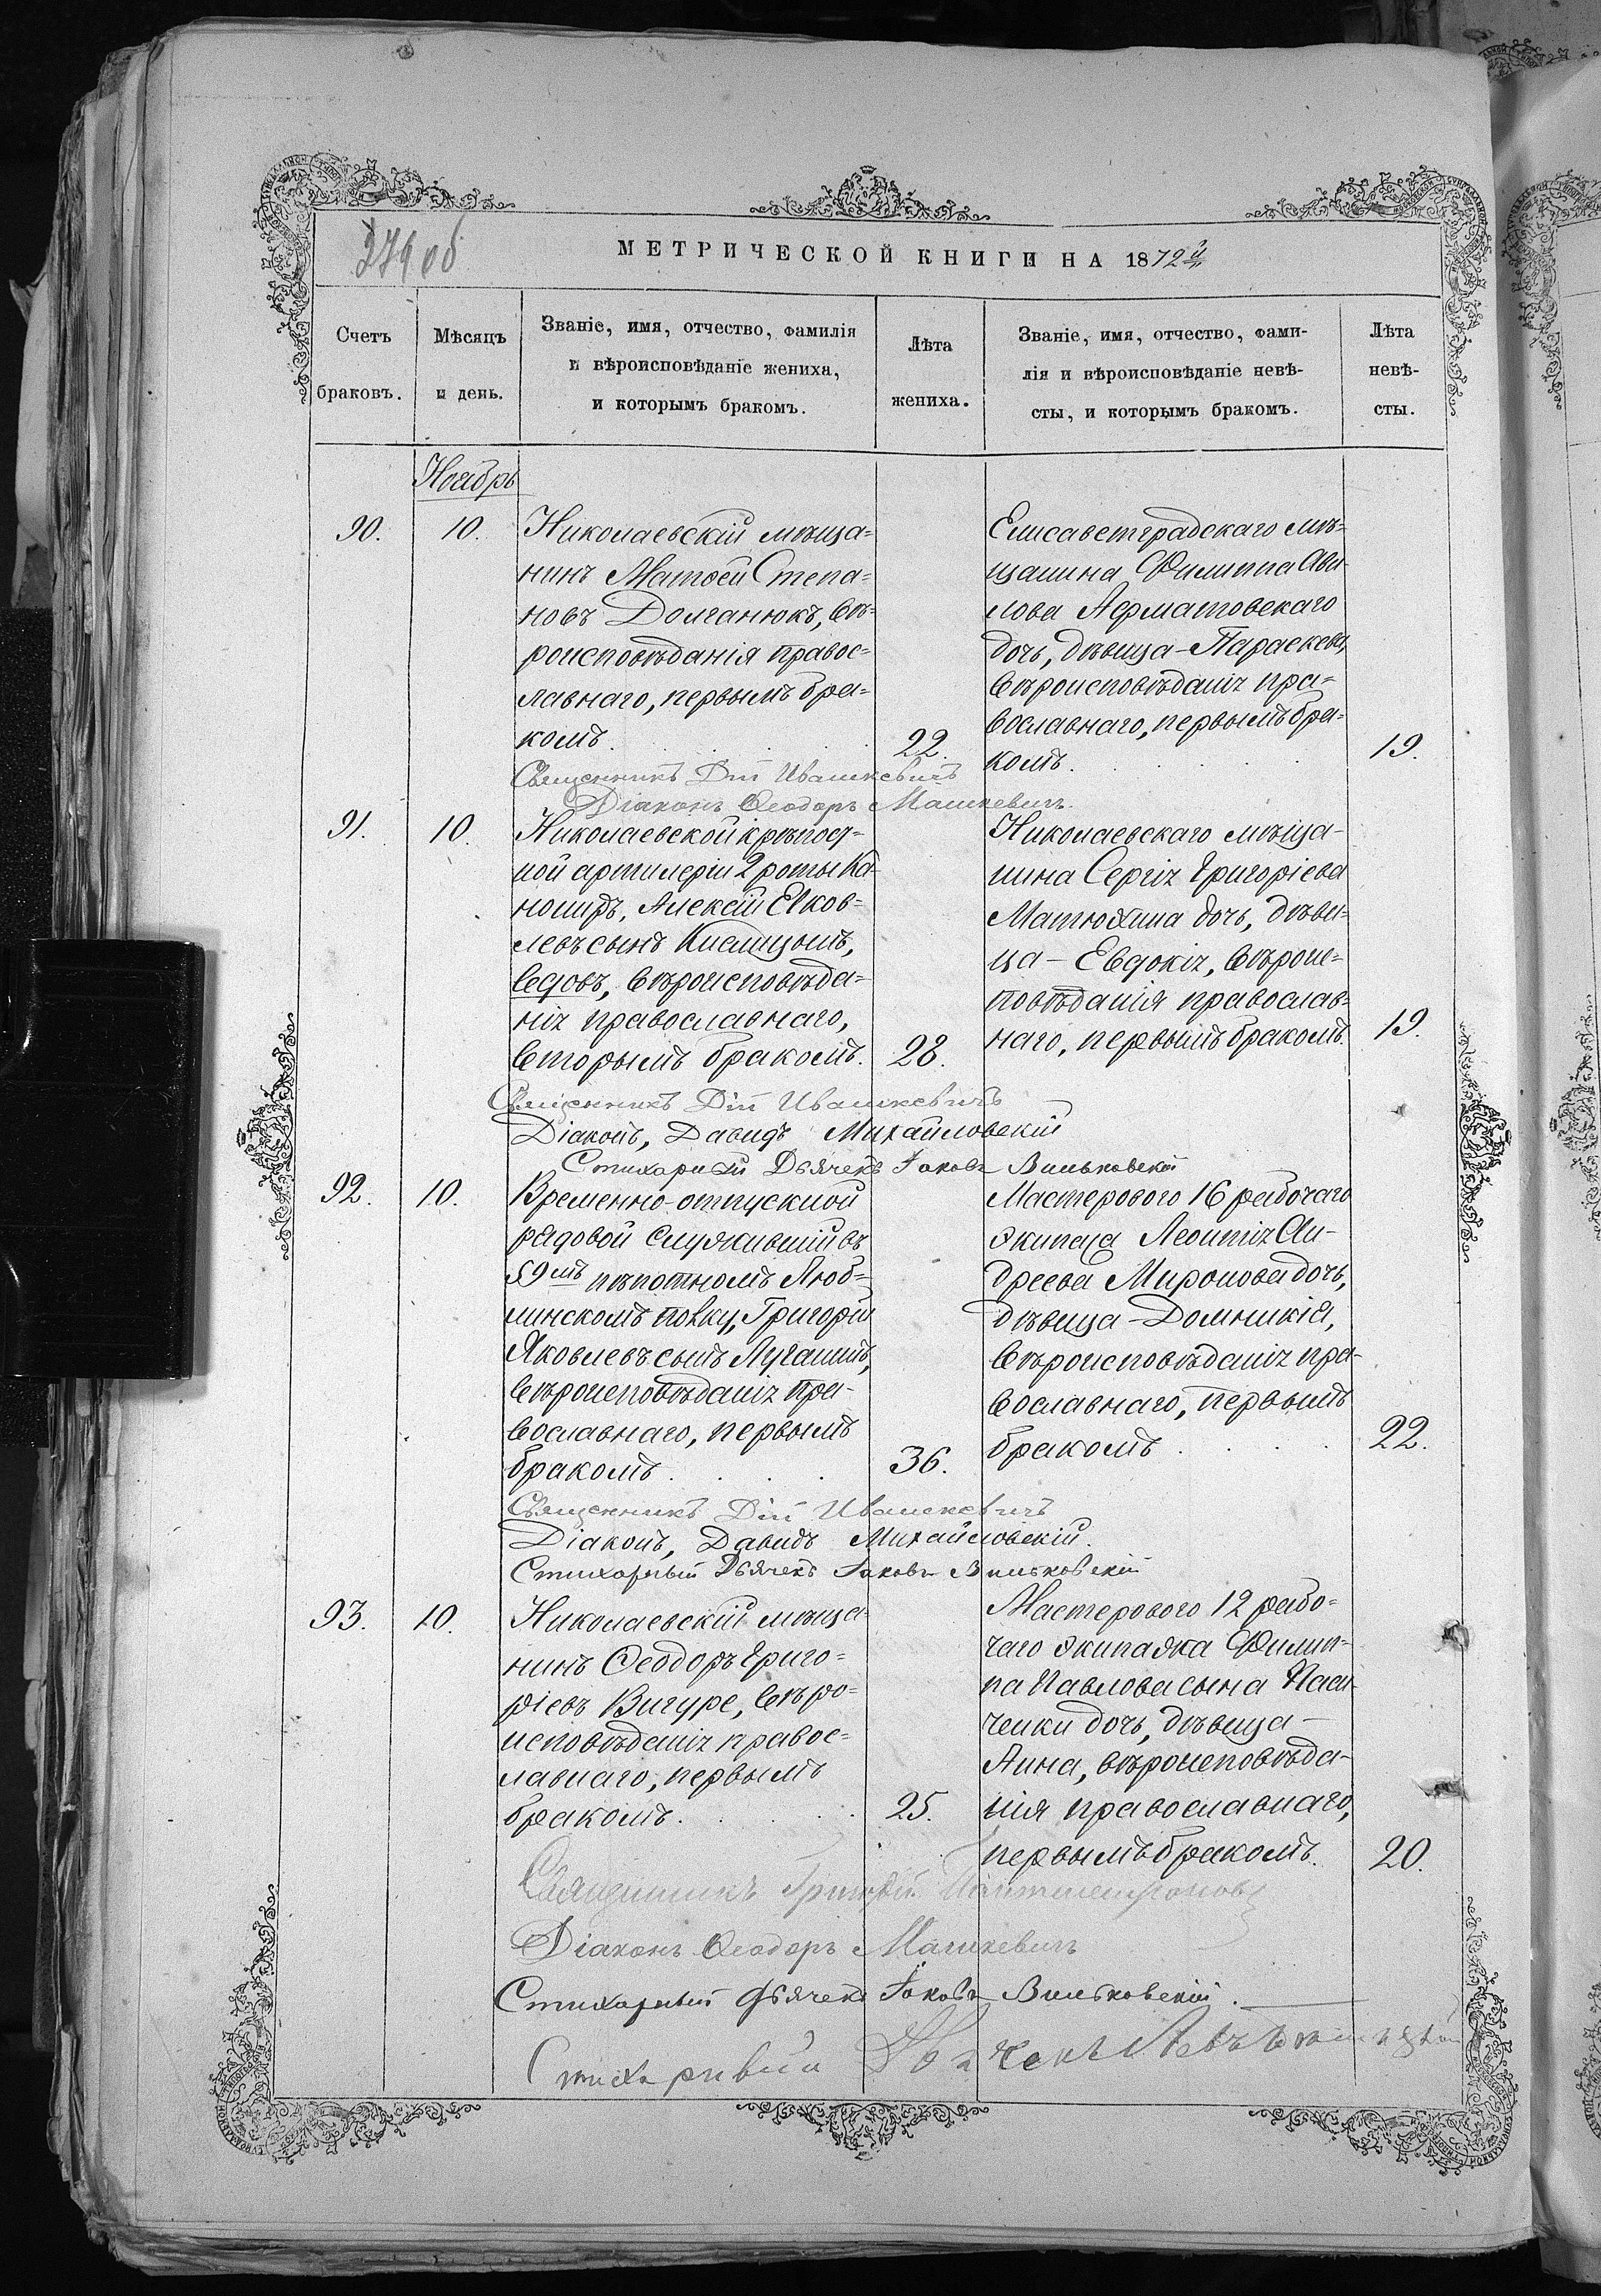 279 об
МЕТРИЧЕСКОЙ КНИГИ НА 1872й
Счетъ
браковъ.
Мѣсяцъ
и день.
Званіе, имя, отчество, фамилія
и вѣроисповѣданіе жениха,
и которымъ бракомъ.
Лѣта
жениха.
Званіе, имя, отчество, фами-
лія и вѣроисповѣданіе невѣ-
сты, и которымъ бракомъ.
Лѣта
невѣ-
сты.
Ноябрь
90.
10.
Николаевскій мѣща=
нинъ Матѳей Степа=
новъ Долганюкъ, вѣ=
роисповѣданія правос=
лавнаго, первымъ бра=
комъ.
22.
Елисаветградскаго мѣ=
щанина Филиппа Ави-
лова Ахрматовскаго
дочь, дѣвица - Параскева,
вѣроисповѣданія пра=
вославнаго, первымъ бра=
комъ.
19.
Священникъ Дій Ивашкевичъ
Діаконъ Ѳеодоръ Машкевичъ.
91.
10.
Николаевской крѣпост-
ной артилеріи 2 роты Ка-
нониръ, Алексѣй Яков=
левъ сынъ
вѣроисповѣда=
нія православнаго,
вторымъ бракомъ.
28.
Николаевскаго мѣща-
нина Сергія Григоріева
Матюхина дочь, дѣви-
ца - Евдокія, вѣроис=
повѣданія православ=
наго, первымъ бракомъ.
19.
Священникъ Дій Ивашкевичъ
Діаконъ, Давидъ Михайловскій
Стихарный Дьячекъ Іаковъ Вильковскій
92.
10.
Временно-отпускной
рядовой служившій въ
59мъ пѣхотномъ Люб=
линскомъ полку, Григорій
Яковлевъ сынъ Луганинъ,
вѣроисповѣданія пра-
вославнаго, первымъ
бракомъ.
36.
Мастероваго 16 рабочаго
экипажа Леонтія Ан-
дреева Миронова дочь,
дѣвица - Домникія,
вѣроисповѣданія пра-
вославнаго, первымъ
бракомъ
22.
Священникъ Дій Ивашкевичъ
Діаконъ, Давидъ Михайловскій.
Стихарный Дьячекъ Іаковъ Вильковскій
93.
10.
Николаевскій мѣща-
нинъ Ѳеодоръ Григо=
ріевъ Вигуре, вѣро=
исповѣданія правос=
лавнаго, первымъ
бракомъ.
25.
Мастероваго 12 рабо=
чаго экипажа Филип=
па Павлова сына
дочь, дѣвица -
Анна, вѣроисповѣда-
нія православнаго,
первымъ бракомъ.
20.
Священникъ Григорій
Діаконъ Ѳеодоръ Машкевичъ
Стихарный Дьячекъ Іаковъ Вильковскій.
Стихарный Дьячекъ Левъ